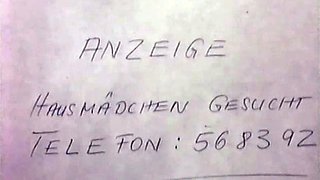 ANZEIGE
HAUSMÄDCHEN GESUCHT
TELEFON: 568392